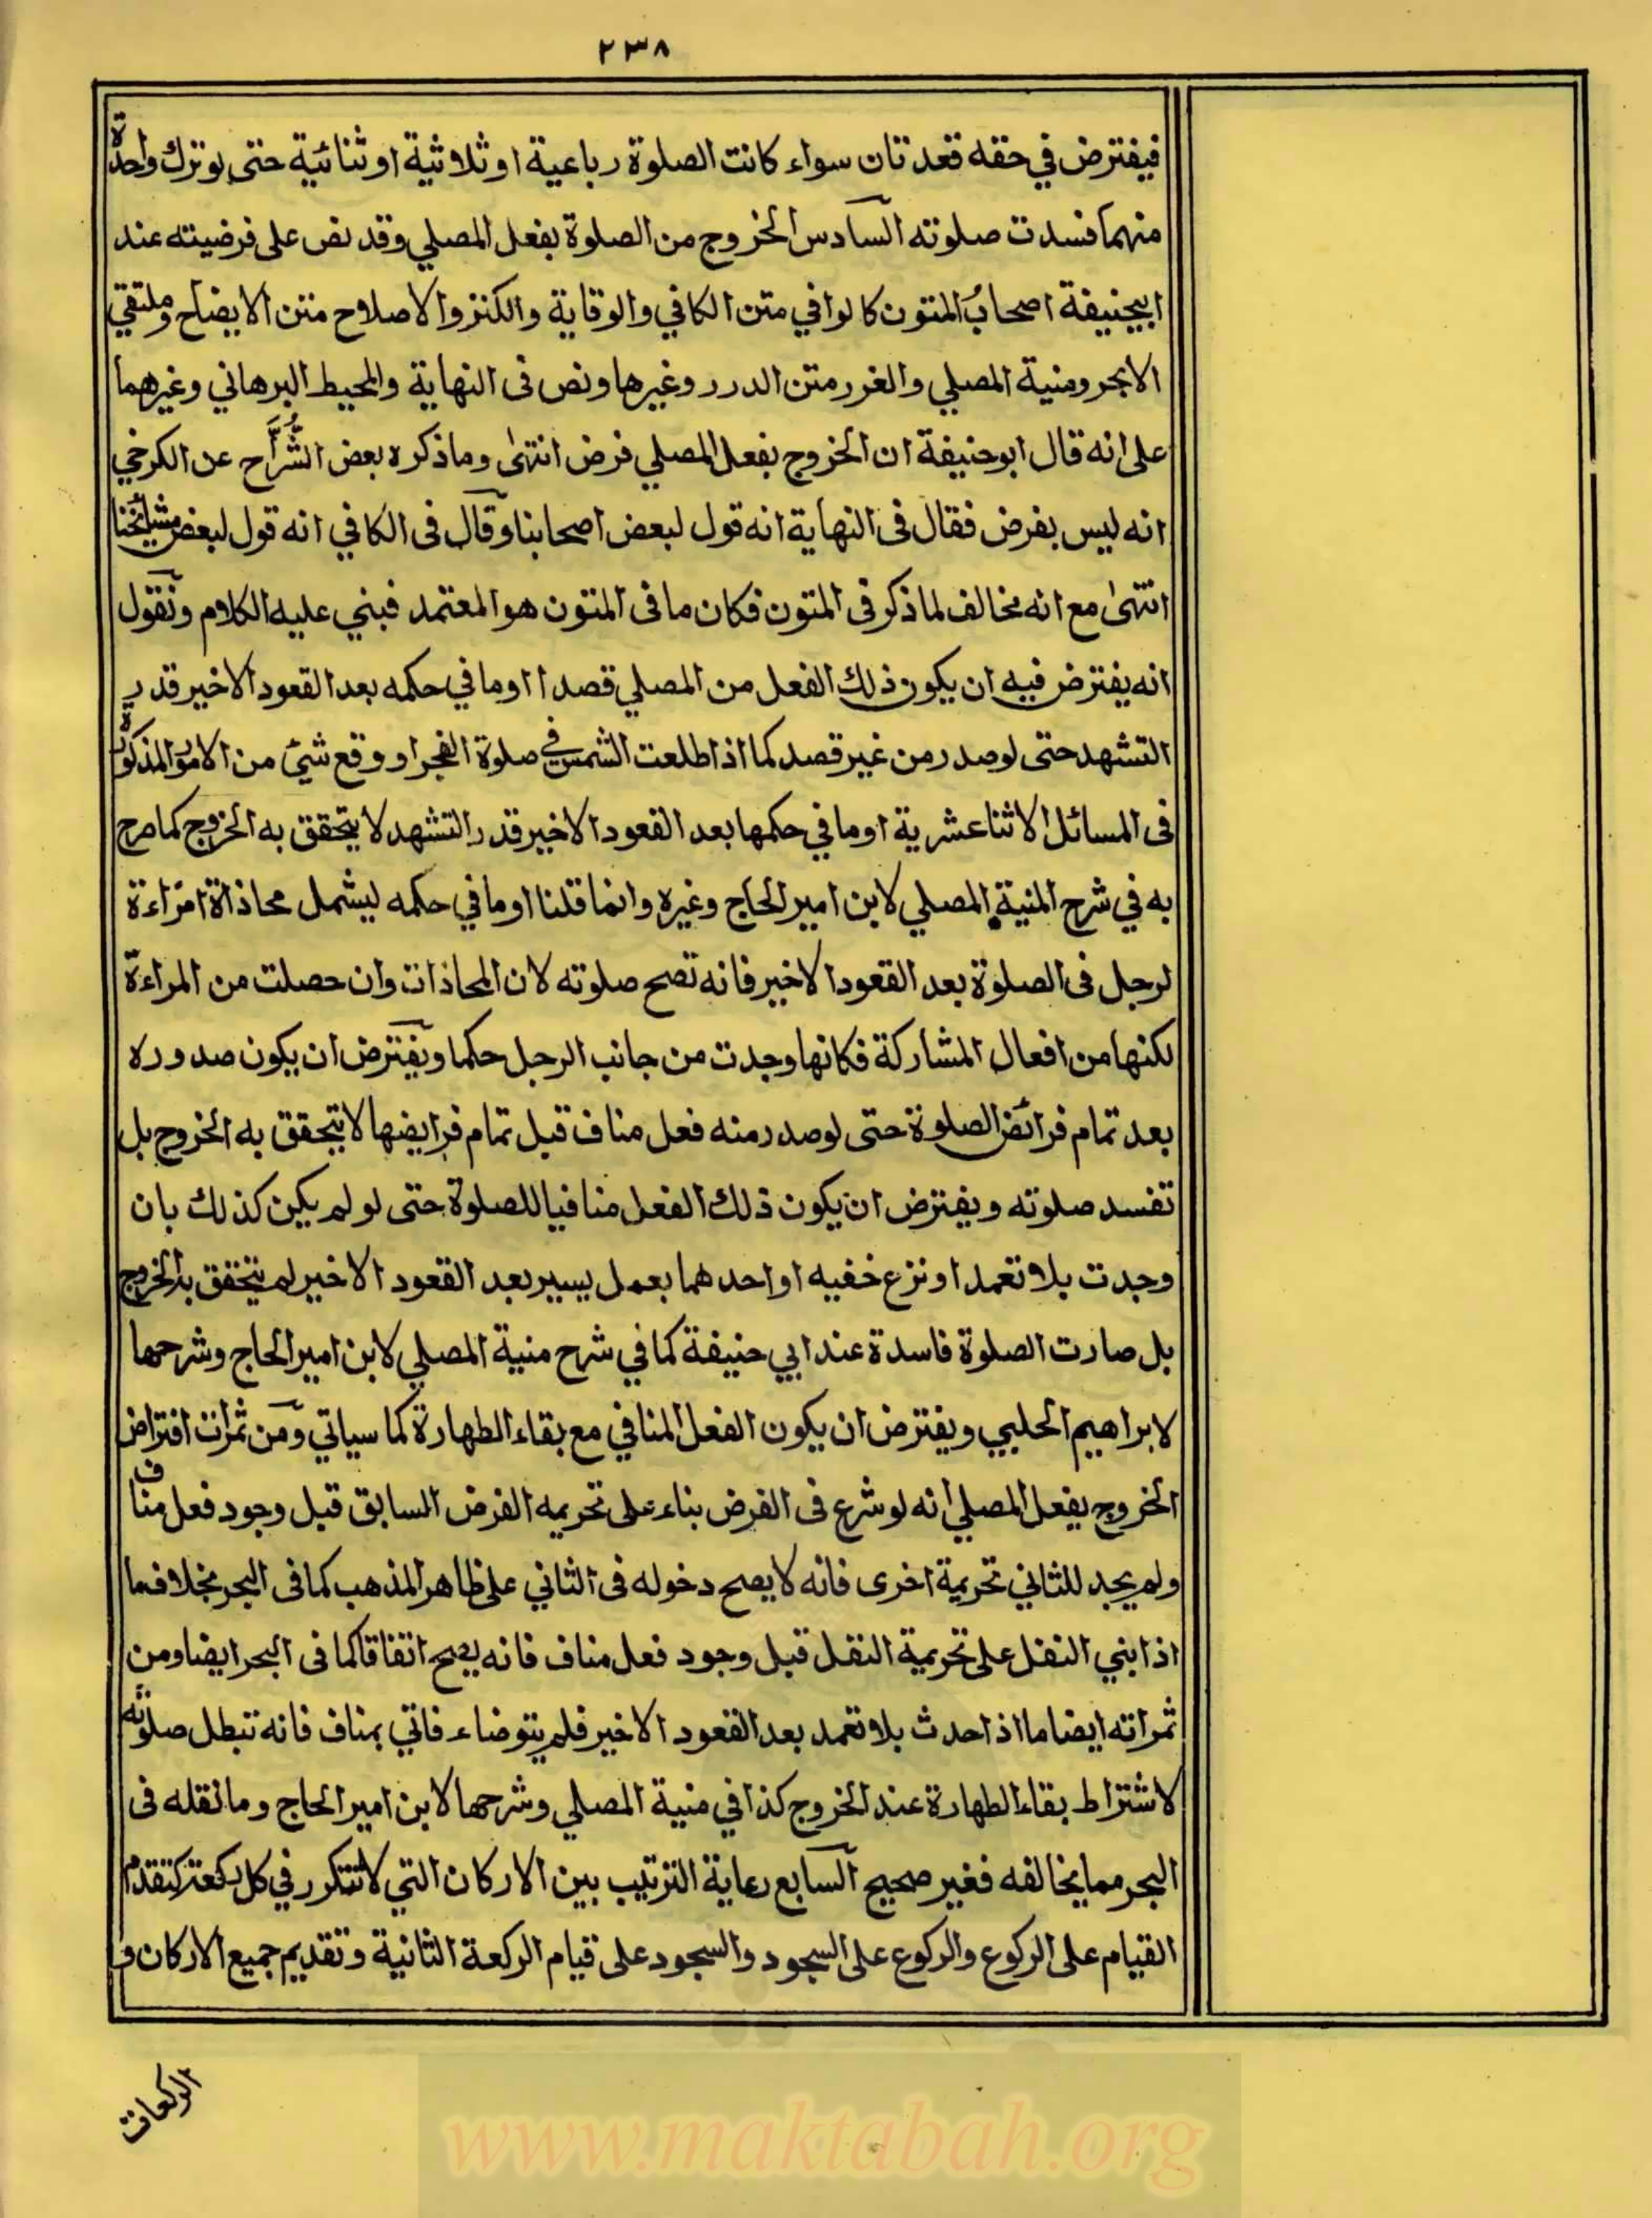 ٢٣٨
فيفترض في حقه قعدتان سواء كانت الصلوة رباعية او ثلاثية او ثنائية حتى لو ترك واحدة
منهما فسدت صلوته السادس الخروج من الصلوة بفعل المصلي وقد نص على فرضيته عند
ابيحنيفة اصحاب المتون كالوافي متن الكافي والوقاية والكنز والاصلاح متن الايضاح وملتقي
الابحر ومنية المصلي والغرر متن الدرر وغيرها ونص فى النهاية والمحيط البرهاني وغيرهما
على انه قال ابو حنيفة ان الخروج بفعل المصلي فرض انتهى وما ذكره بعض الشُّرَّاح عن الكرخي
انه ليس بفرض فقال فى النهاية انه قول لبعض اصحابنا وقال فى الكافي انه قول لبعض مشائخنا
انتهى مع انه مخالف لما ذكر فى المتون فكان ما فى المتون هو المعتمد فبني عليه الكلام ونقول
انه يفترض فيه ان يكون ذلك الفعل من المصلي قصدا او ما في حكمه بعد القعود الاخير قدر
التشهد حتى لو صدر من غير قصد كما اذا طلعت الشمس في صلوة الفجر او وقع شئ من الامور المذكورة
فى المسائل الاثنا عشرية او ما في حكمها بعد القعود الاخير قدر التشهد لا يتحقق به الخروج كما صرح
به في شرح المنية المصلي لابن امير الحاج وغيره وانما قلنا او ما في حكمه ليشمل محاذاة امراءة
لرجل فى الصلوة بعد القعود الاخير فانه تصح صلوته لان المحاذات وان حصلت من المراءة
لكنها من افعال المشاركة فكانها وجدت من جانب الرجل حكما ويفترض ان يكون صدوره
بعد تمام فرائض الصلوة حتى لو صدر منه فعل مناف قبل تمام فرايضها لا يتحقق به الخروج بل
تفسد صلوته ويفترض ان يكون ذلك الفعل منافيا للصلوة حتى لو لم يكن كذلك بان
وجدت بلا تعمد او نزع خفيه او احدهما بعمل يسير بعد القعود الاخير لم يتحقق به الخروج
بل صارت الصلوة فاسدة عند ابي حنيفة كما في شرح منية المصلي لابن امير الحاج وشرحها
لابراهيم الحلبي ويفترض ان يكون الفعل المنافي مع بقاء الطهارة كما سياتي ومن ثمرات افتراض
الخروج بفعل المصلي انه لو شرع فى الفرض بناء على تحريمه الفرض السابق قبل وجود فعل مناف
ولم يجد للثاني تحريمة اخرى فانه لا يصح دخوله فى الثاني على ظاهر المذهب كما فى البحر بخلاف ما
اذا بني النفل على تحريمة النفل قبل وجود فعل مناف فانه يصح اتفاقا كما فى البحر ايضا ومن
ثمراته ايضا ما اذا احدث بلا تعمد بعد القعود الاخير فلم يتوضاء فاتي بمناف فانه تبطل صلوته
لاشتراط بقاء الطهارة عند الخروج كذا في منية المصلي وشرحها لابن امير الحاج وما نقله فى
البحر مما يخالفه فغير صحيح السابع رعاية الترتيب بين الاركان التي لا تتكرر في كل ركعة كتقدم
القيام على الركوع والركوع على السجود والسجود على قيام الركعة الثانية وتقديم جميع الاركان و
الركعات
www.maktabah.org